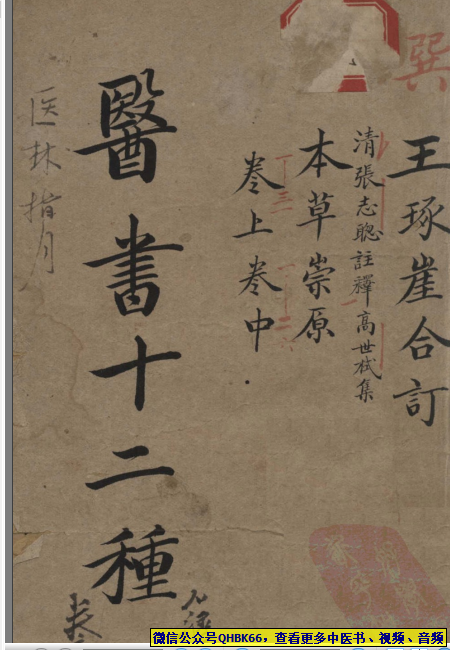 巽
王琢崖合訂
清張志聰註釋高世栻集
本草崇原
卷上卷中
醫書十二種
医林指月
卷
微信公众号QHBK66，查看更多中医书、视频、音频